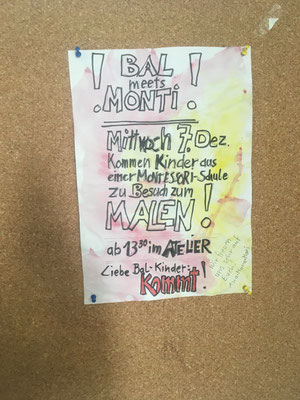 ! BAL !
meets
MONTI
Mittwoch 7. Dez.
Kommen Kinder aus
einer MONTESSORI-Schule
zu Besuch zum
MALEN!
ab 13³⁰ im ATELIER
Liebe Bal-Kinder:
Kommt!